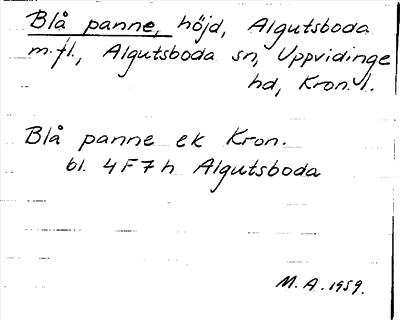 Blå panne, höjd, Algutsboda
m.fl., Algutsboda sn, Uppvidinge
hd, Kron. l.
Blå panne ek Kron.
bl. 4F7h Algutsboda
M.A. 1959.